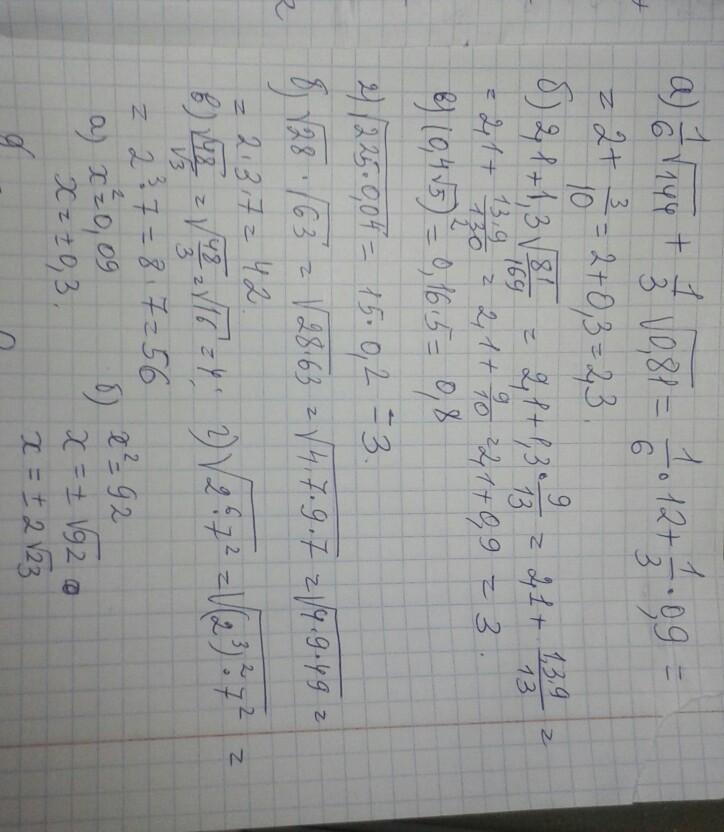 а) 1/6 √144 + 1/3 √0,81 = 1/6 · 12 + 1/3 · 0,9 =
= 2 + 3/10 = 2 + 0,3 = 2,3.
б) 2,1 + 1,3 √81/169 = 2,1 + 1,3 · 9/13 = 2,1 + 1,3·9/13 =
= 2,1 + 13·9/130 = 2,1 + 9/10 = 2,1 + 0,9 = 3.
в) (0,4√5)² = 0,16·5 = 0,8
а) √225·0,04 = 15·0,2 = 3.
б) √28 · √63 = √28·63 = √4·7·9·7 = √4·9·49 =
= 2·3·7 = 42.
в) √48/√3 = √48/3 = √16 = 4; г) √2⁶·7² = √(2³)²·7² =
= 2³·7 = 8·7 = 56
а) x² = 0,09 б) x² = 92
x = ±0,3. x = ±√92
x = ±2√23